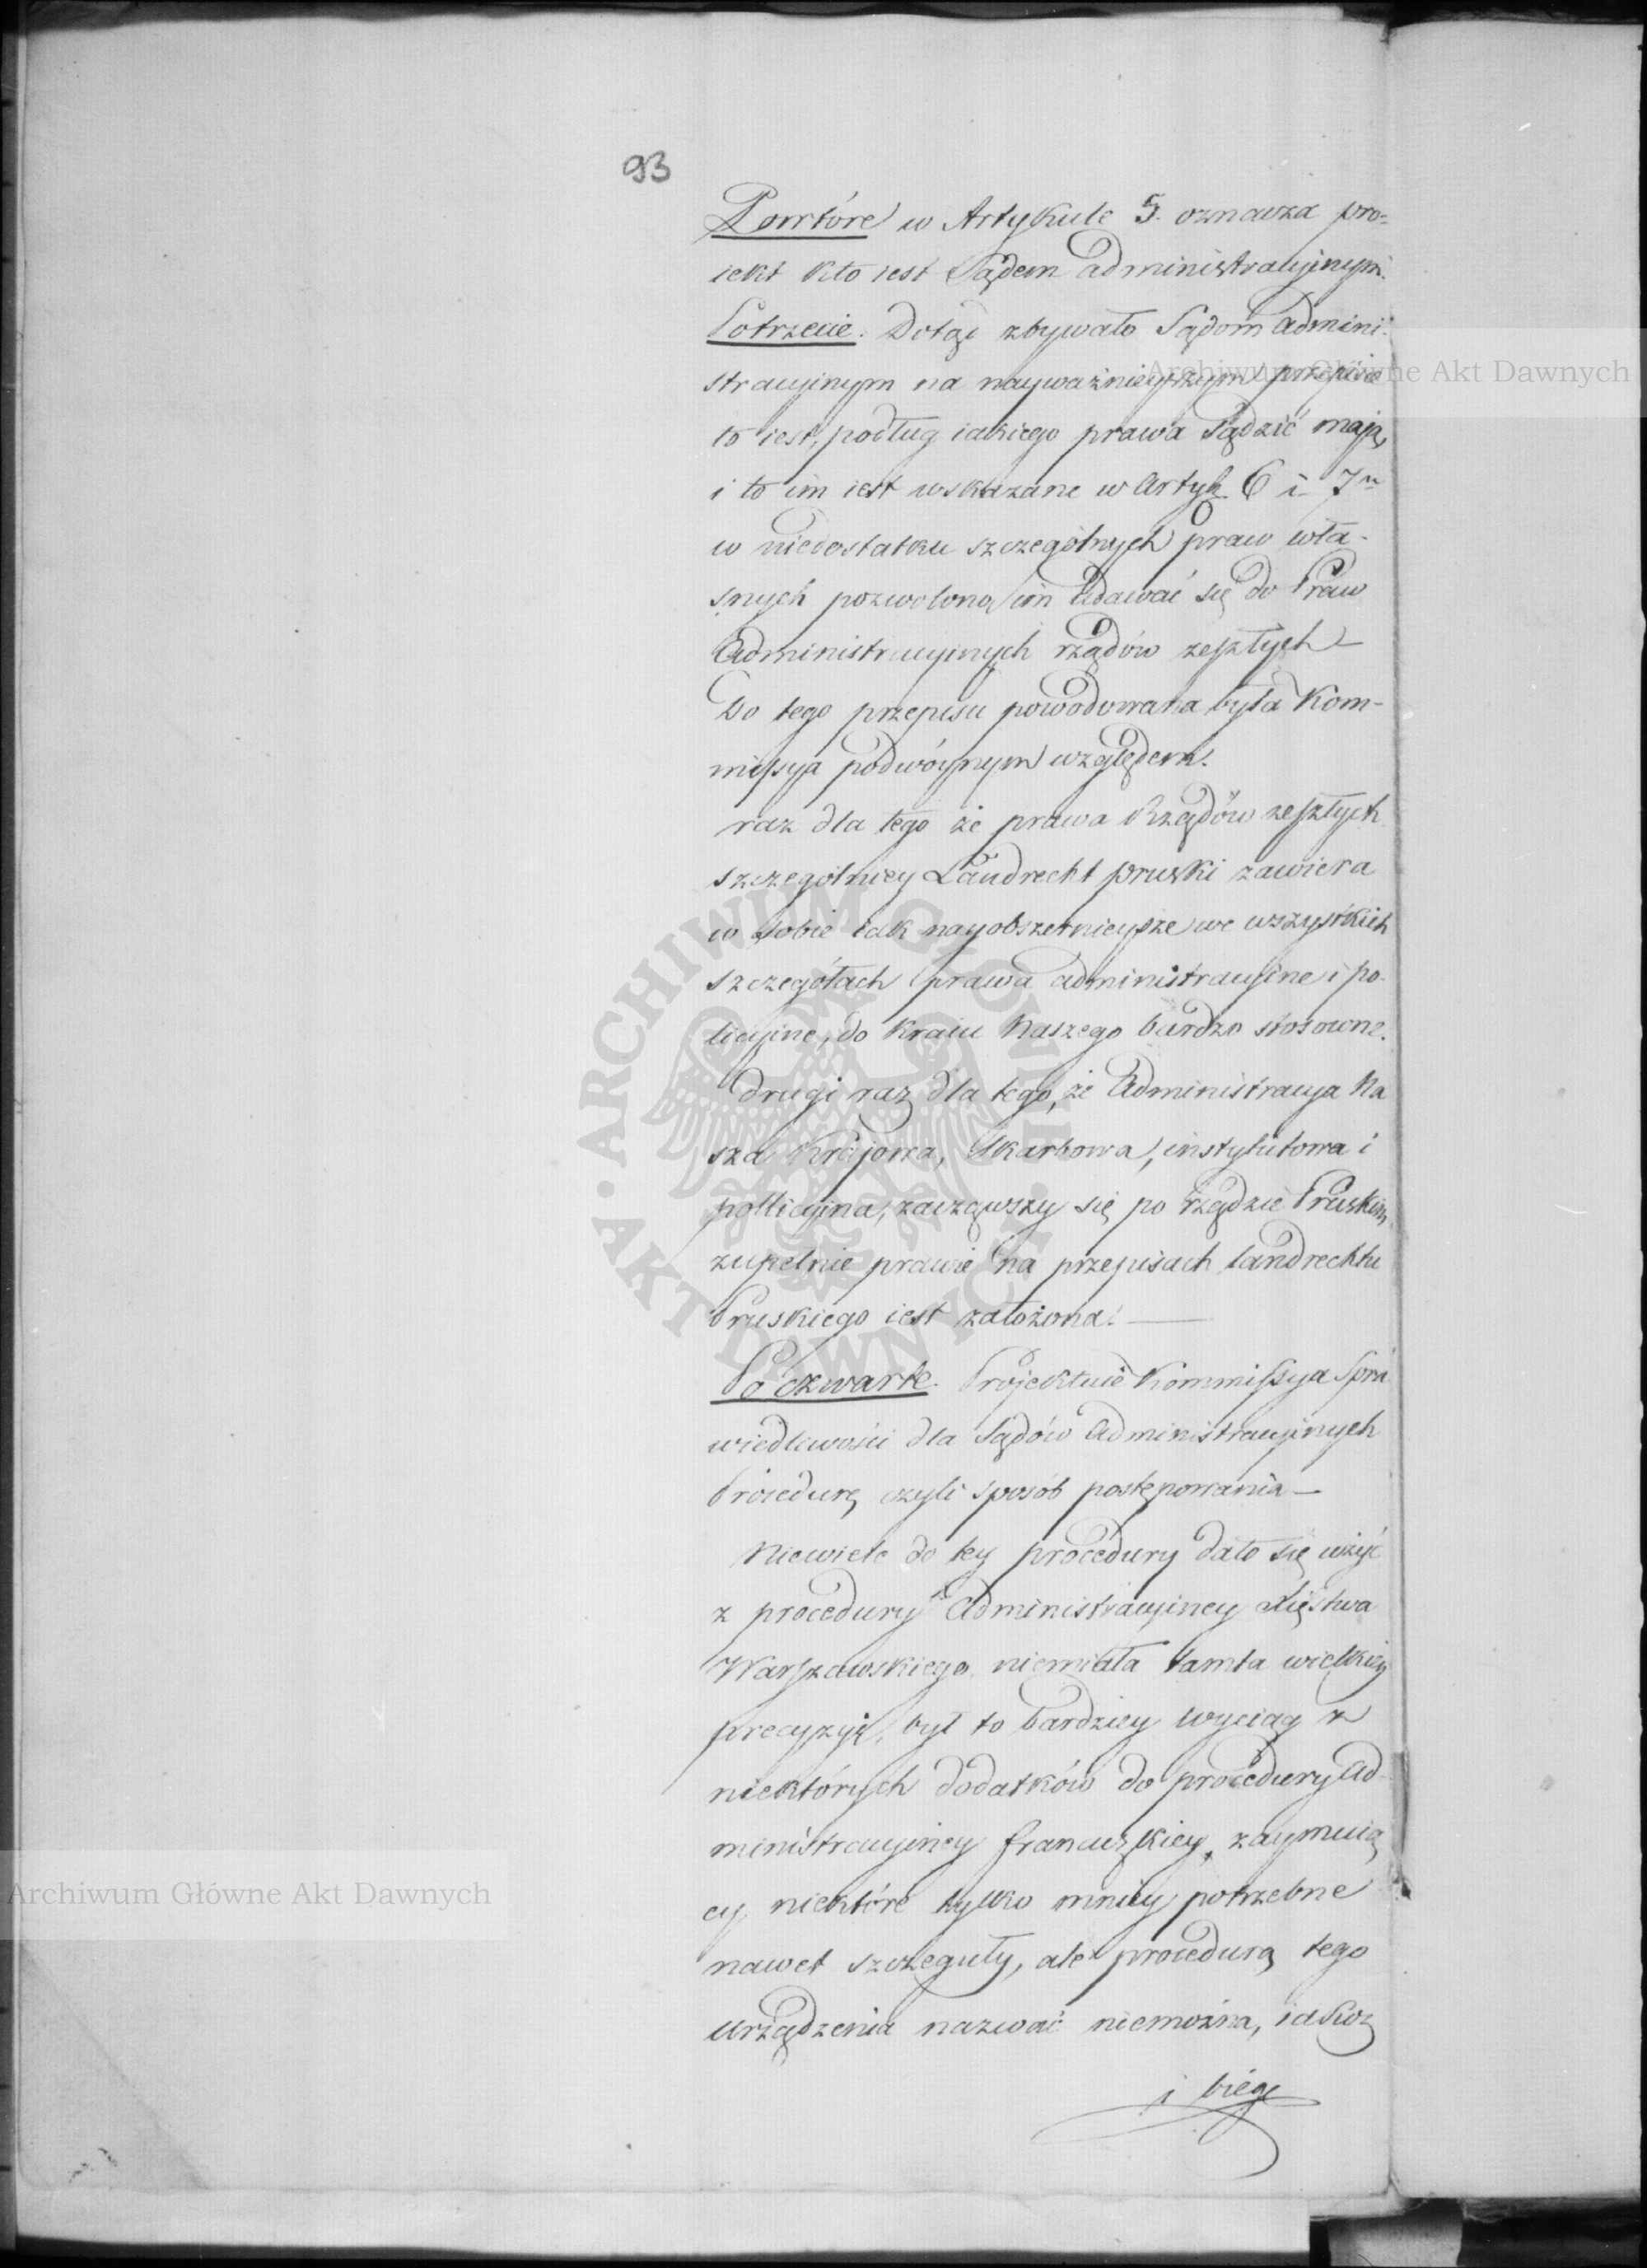 93
Powtóre w Artykule 5. oznacza pro=
iekt kto iest Sądem administracyinym.
Potrzecie. Dotąd zbywało Sądom admini-
stracyinym na nayważnieyszym przepisie
to iest, podług iakiego prawa Sądzić mają,
i to im iest wskazane w Artyk. 6 i 7m
w niedostatku szczególnych praw wła-
snych pozwolono im udawać się do Praw
Administracyinych rządów zeszłych —
Do tego przepisu powodowana była Kom-
missya podwóynym względem.
raz dla tego że prawa Rządów zeszłych
szczególniey Landrecht pruski zawiera
w sobie iak nayobszernieysze we wszystkich
szczegółach prawa administracyine i po-
licyine, do kraiu Naszego bardzo stosowne.
drugi raz dla tego, że Administracya Na
sza Krajowa, Skarbowa, instytutowa i
pollicyina, zacząwszy się po rządzie Pruskim,
zupełnie prawie na przepisach landrechtu
Pruskiego iest założona. —
Po czwarte. Projektuie Kommissya Spra
wiedliwości dla Sądów Administracyinych
Procedurę czyli sposób postępowania —
Niewiele do tey procedury dało się użyć
z procedury Administracyiney Xięstwa
Warszawskiego. niemiała tamta wielkiey
precyzyi, był to bardziey wyciąg z
niektórych dodatków do procedury Ad-
ministracyiney francuzkiey, zaymuią
cy niektóre tylko mniey potrzebne
nawet szczeguły, ale procedurą tego
urządzenia nazwać niemożna, iakoż
i biég
Archiwum Główne Akt Dawnych
Archiwum Główne Akt Dawnych
ARCHIWUM GŁÓWNE · AKT DAWNYCH ·